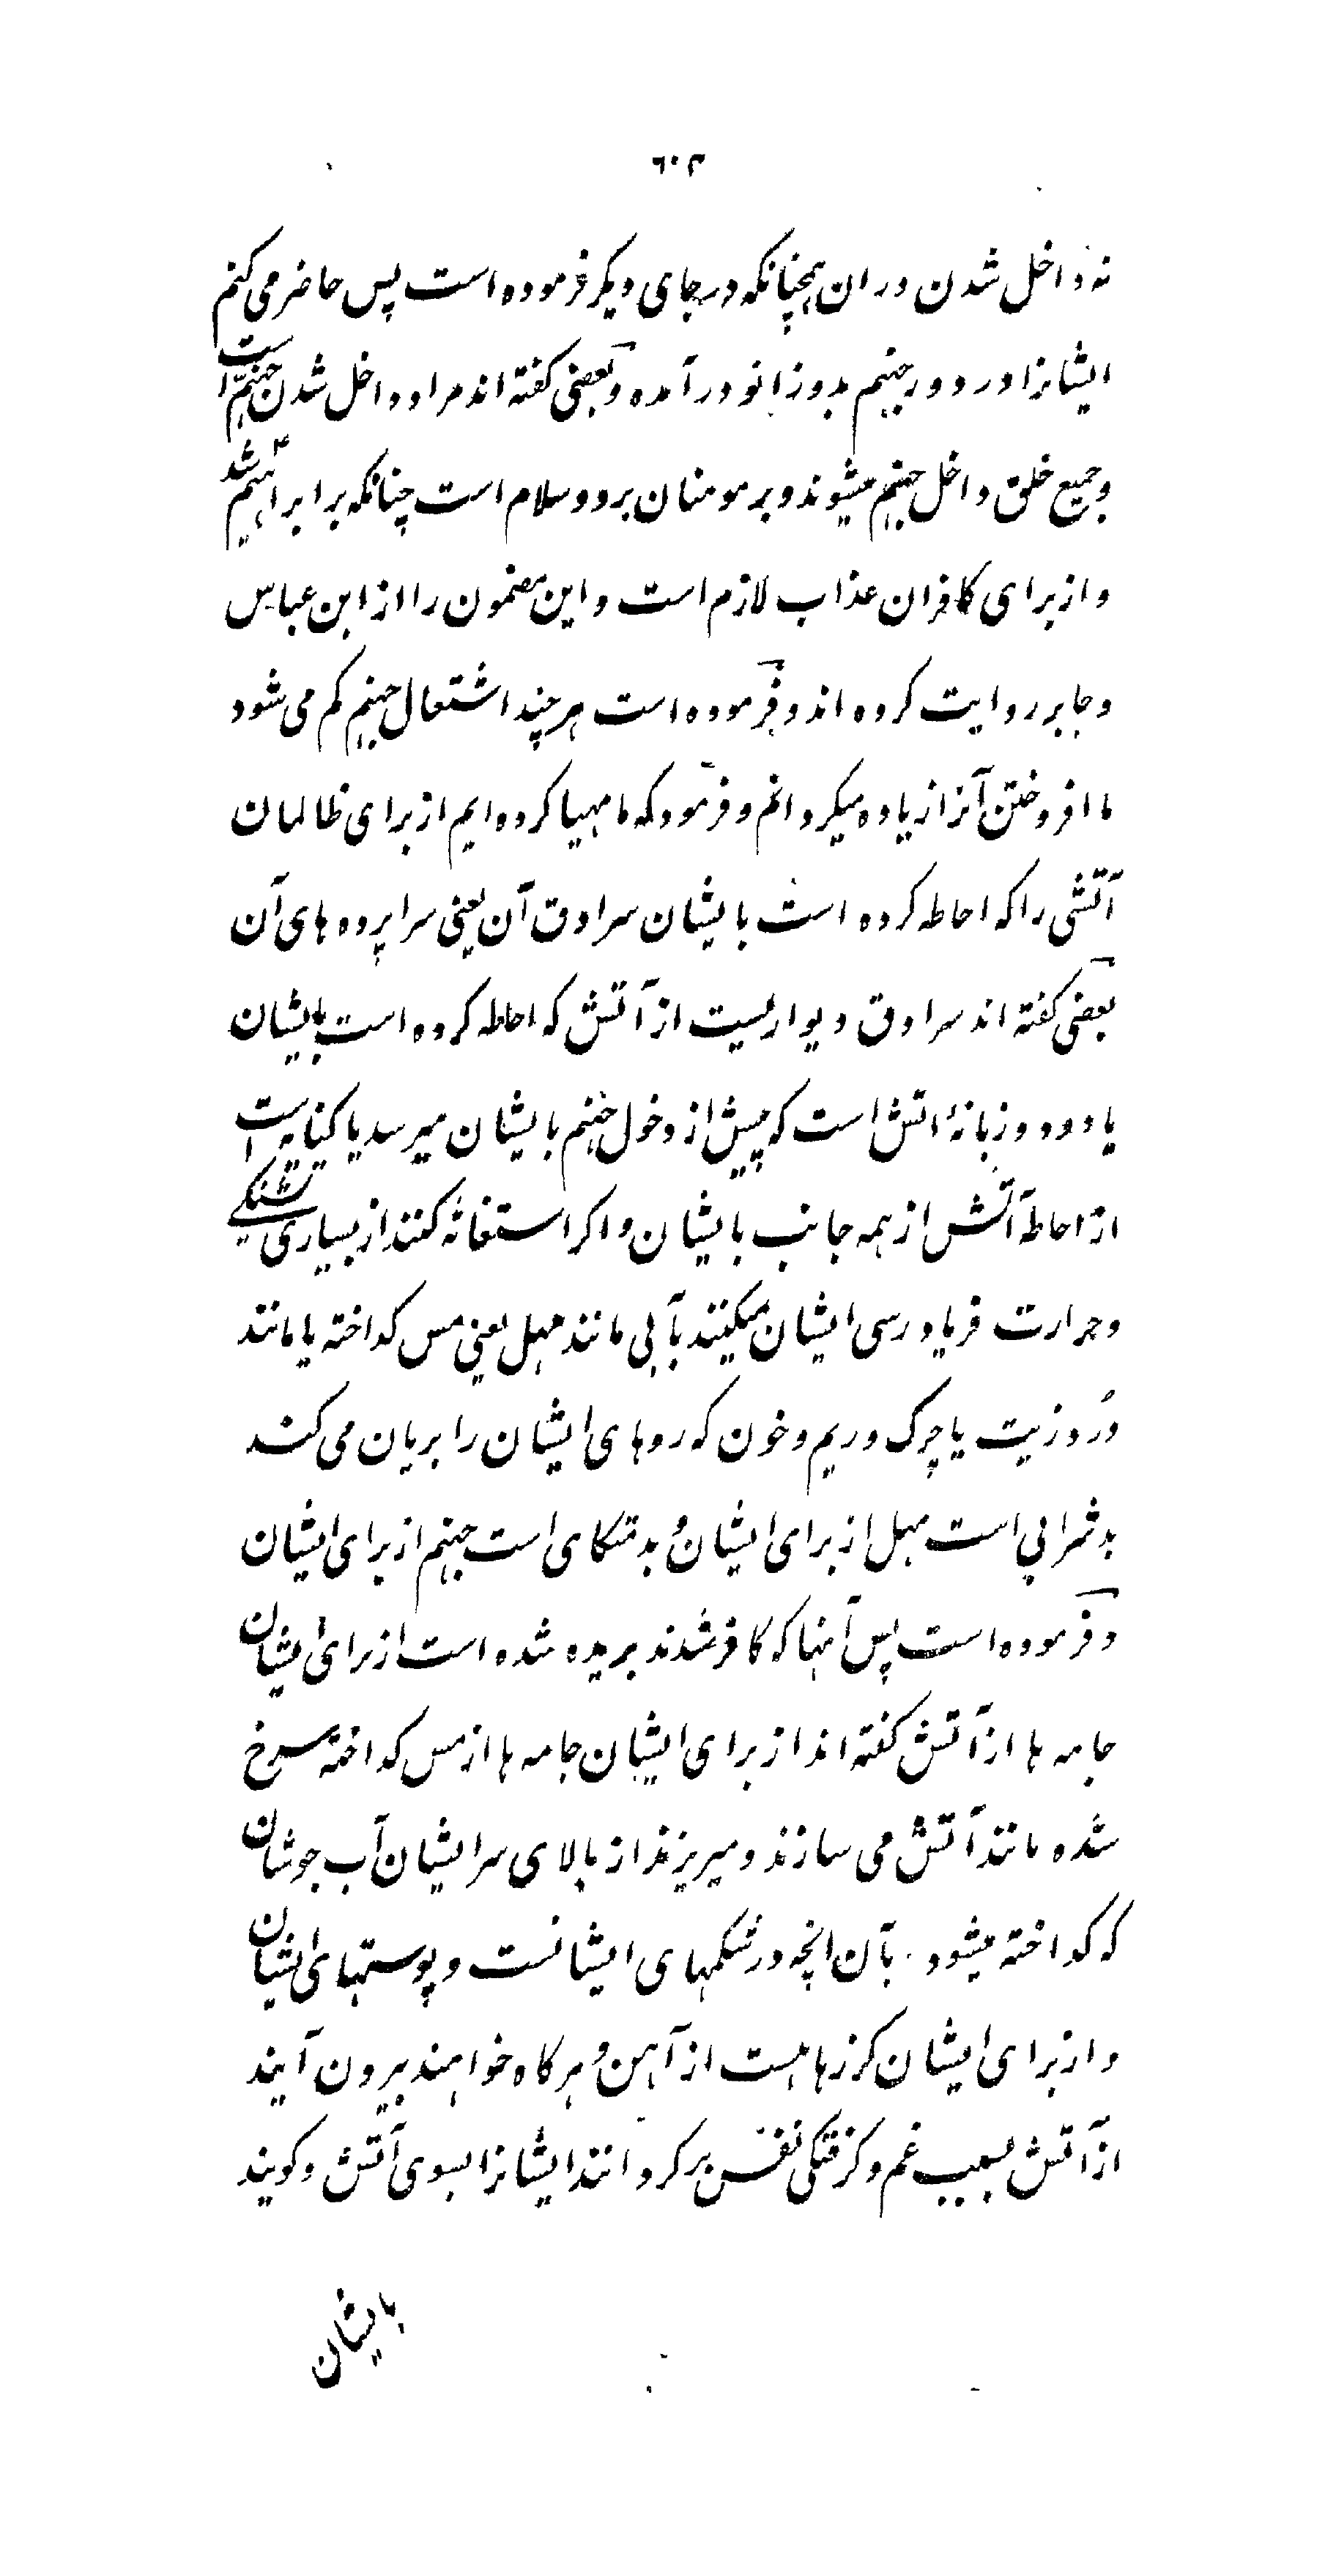 ٦٠٣
نه داخل شدن در ان همچنانکه در جای دیکر فرموده است پس حاضر می کنم
ایشانرا در دور جهنم بدو زانو در آمده و بعضی کفته اند مراد داخل شدن جهنم است
و جمیع خلق داخل جهنم میشوند و بر مومنان برد و سلام است چنانکه بر ابراهیم ع شد
و از برای کافران عذاب لازم است و این مضمون را از ابن عباس
و جابر روایت کرده اند و فرموده است هر چند اشتعال جهنم کم می شود
ما افروختن آنرا زیاده میکردانم و فرمود که ما مهیا کرده ایم از برای ظالمان
آتشی را که احاطه کرده است بایشان سرادق آن یعنی سراپرده های آن
بعضی کفته اند سرادق دیواریست از آتش که احاطه کرده است بایشان
یا دود و زبانهٔ اتش است که پیش از دخول جهنم بایشان میرسد یا کنایه است
از احاطهٔ آتش از همه جانب بایشان و اکر استغاثه کنند از بسیاری تشنکی
و حرارت فریاد رسی ایشان میکنند بآبی مانند مهل یعنی مس کداخته یا مانند
دُرد زیت یا چرک و ریم و خون که روهای ایشان را بریان می کند
بد شرابی است مهل از برای ایشان و بد متکای است جهنم از برای ایشان
و فرموده است پس آنها که کافر شدند بریده شده است از برای ایشان
جامه ها از آتش کفته اند از برای ایشان جامه ها از مس کداختهٔ سرخ
شده مانند آتش می سازند و میریزند از بالای سر ایشان آب جوشان
که کداخته میشود بآن انچه در شکمهای ایشانست و پوستهای ایشان
و از برای ایشان کرزها هست از آهن و هر کاه خواهند بیرون آیند
از آتش بسبب غم و کرفتکی نفس بر کردانند ایشانرا بسوی آتش و کویند
بایشان